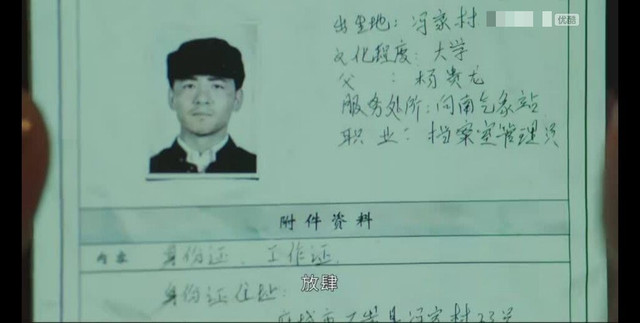 优酷
出生地：冯家村
文化程度：大学
父：杨贵龙
服务处所：向南气象站
职业：档案室管理员
附件资料
内容 身份证、工作证
放肆
身份证住址：
冯家村33号